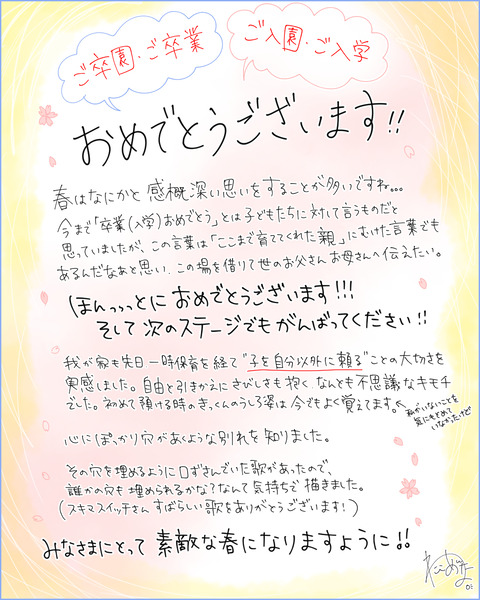 ご卒園・ご卒業
ご入園・ご入学
おめでとうございます!!
春はなにかと感慨深い思いをすることが多いですね。。。
今まで「卒業(入学)おめでとう」とは子どもたちに対して言うものだと
思っていましたが、この言葉は「ここまで育ててくれた親」にむけた言葉でも
あるんだなあと思い、この場を借りて世のお父さんお母さんへ伝えたい。
ほんっっっとに おめでとうございます!!!
そして 次のステージでも がんばってください!!
我が家も先日 一時保育を経て"子を自分以外に頼る"ことの大切さを
実感しました。自由と引きかえに さびしさも抱く、なんとも不思議なキモチ
でした。初めて預ける時のきっくんのうしろ姿は 今でもよく覚えてます。
私がいないことを
気にもとめて
いなかったけど
心にぽっかり穴があくような別れを 知りました。
その穴を埋めるように口ずさんでいた歌があったので、
誰かの穴も 埋められるかな?なんて気持ちで 描きました。
(スキマスイッチさん すばらしい歌をありがとうございます!)
みなさまにとって 素敵な春になりますように!!